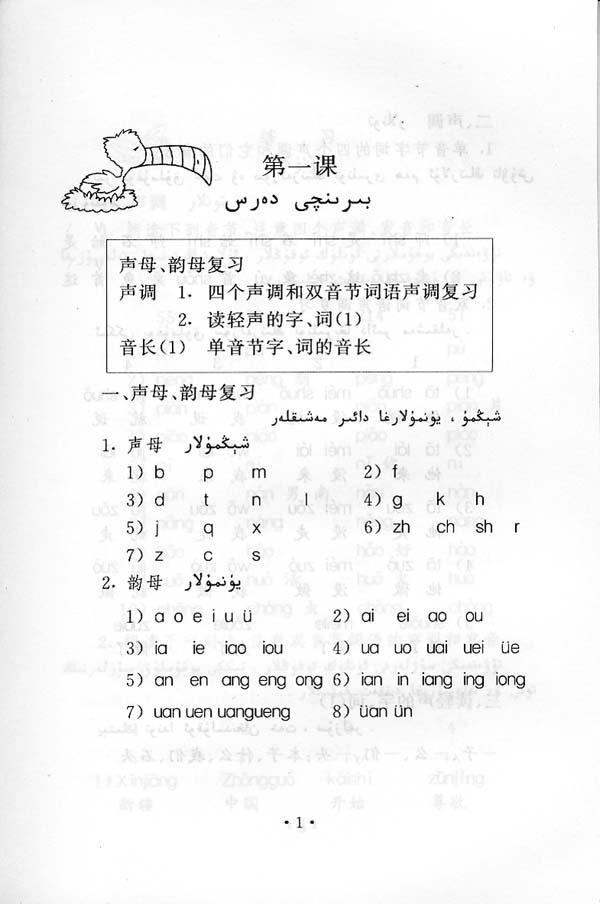 第一课
بىرىنچى دەرس
声母、韵母复习
声调 1. 四个声调和双音节词语声调复习
2. 读轻声的字、词(1)
音长(1) 单音节字、词的音长
一、声母、韵母复习
شېڭمۇ، يۈنمۇلارغا دائىر مەشىقلەر
1. 声母 شېڭمۇلار
1) b p m 2) f
3) d t n l 4) g k h
5) j q x 6) zh ch sh r
7) z c s
2. 韵母 يۈنمۇلار
1) a o e i u ü 2) ai ei ao ou
3) ia ie iao iou 4) ua uo uai uei üe
5) an en ang eng ong 6) ian in iang ing iong
7) uan uen uangueng 8) üan ün
· 1 ·